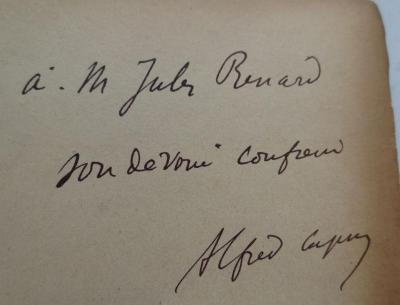 à. M Jules Renard
son dévoué confrère
Alfred Capus